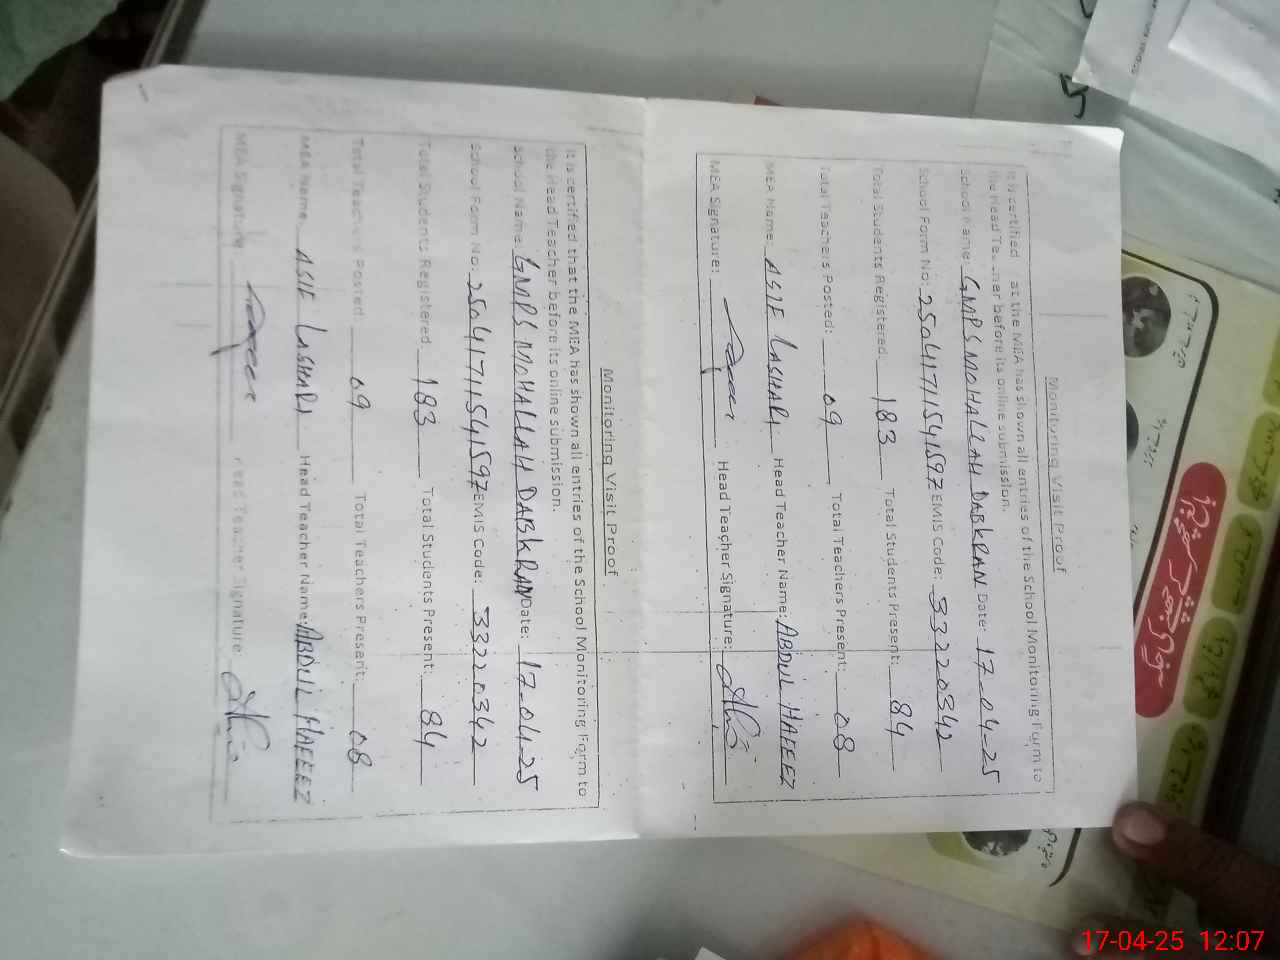 Monitoring Visit Proof
It is certified at the MEA has shown all entries of the School Monitoring Form to
the Head Teacher before its online submission.
School Name: GMPS MOHALLAH DABKRAN Date: 17-04-25
School Form No: 2504171154159Z EMIS Code: 33220342
Total Students Registered: 183 Total Students Present: 84
Total Teachers Posted: 09 Total Teachers Present: 08
MEA Name: ASIF LASHARI Head Teacher Name: ABDUL HAFEEZ
MEA Signature: Head Teacher Signature:
Monitoring Visit Proof
It is certified that the MEA has shown all entries of the School Monitoring Form to
the Head Teacher before its online submission.
School Name: GMPS MOHALLAH DABKRAN Date: 17-04-25
School Form No: 2504171154159Z EMIS Code: 33220342
Total Students Registered: 183 Total Students Present: 84
Total Teachers Posted: 09 Total Teachers Present: 08
MEA Name: ASIF LASHARI Head Teacher Name: ABDUL HAFEEZ
MEA Signature: Head Teacher Signature:
17-04-25 12:07